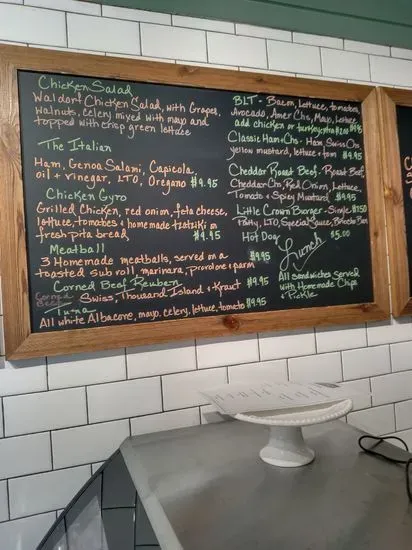 Chicken Salad
Waldorf Chicken Salad, with Grapes,
Walnuts, celery mixed with mayo and
topped with crisp green lettuce
The Italian
Ham, Genoa Salami, Capicola,
oil + vinegar, LTO, Oregano $9.95
Chicken Gyro
Grilled Chicken, red onion, feta cheese,
lettuce, tomatoes + homemade tzatziki on
fresh pita bread $9.95
Meatball
3 Homemade meatballs, served on a
toasted sub roll, marinara, provolone + parm $9.95
Corned Beef Reuben
Corned Beef Swiss, Thousand Island + Kraut $9.95
Tuna
All white Albacore, mayo, celery, lettuce, tomato $9.95
BLT - Bacon, Lettuce, tomatoes,
Avocado, Amer Chs, Mayo, Lettuce $8.95
add chicken or turkey extra $2.00
Classic Ham + Chs - Ham, Swiss Chs
yellow mustard, lettuce + tom $9.95
Cheddar Roast Beef - Roast Beef,
Cheddar Chs, Red Onion, Lettuce,
Tomato + Spicy Mustard $9.95
Little Crown Burger - Single
Patty, LTO, Special Sauce, Brioche Bun
Hot Dog $5.00
Lunch
All Sandwiches Served
with Homemade Chips
+ Pickle